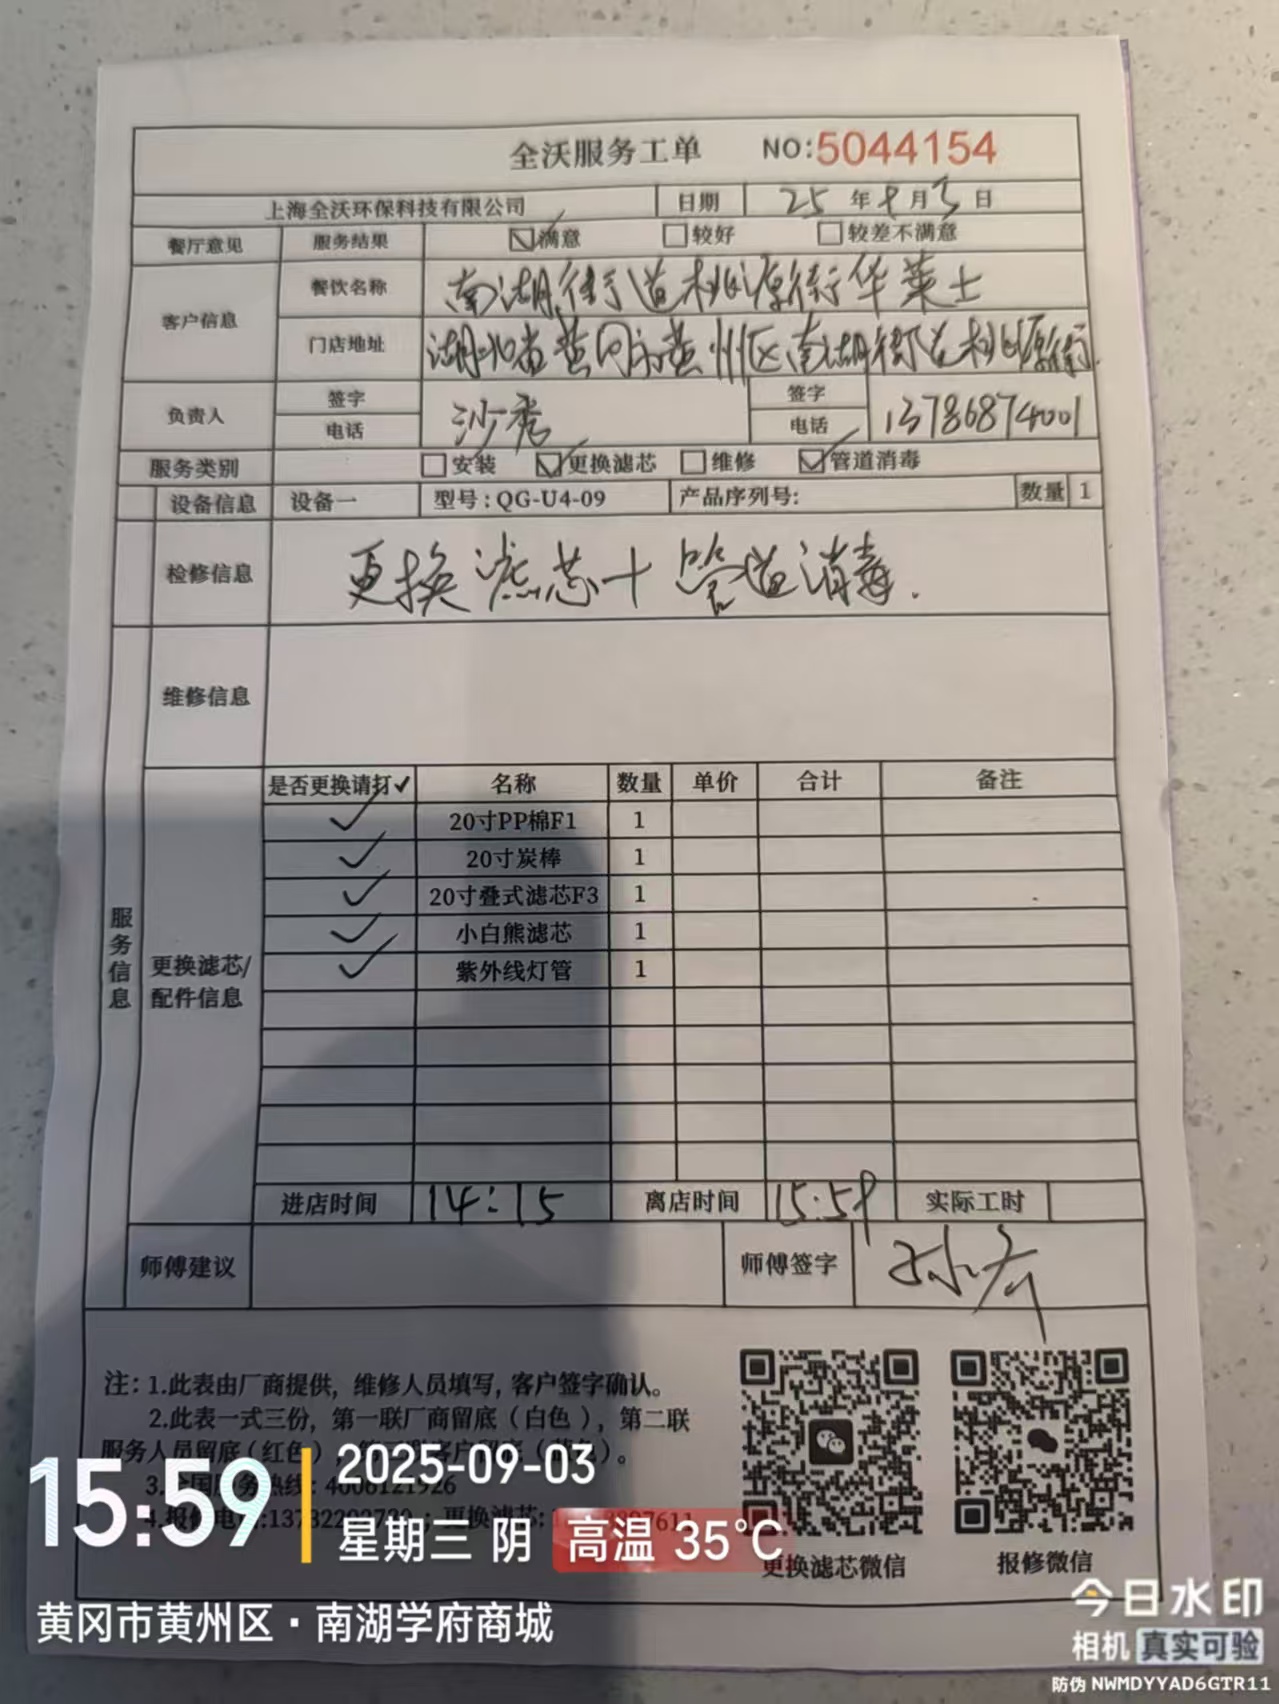 全沃服务工单 NO:5044154
上海全沃环保科技有限公司 日期 25 年 9 月 3 日
餐厅意见 服务结果 ☑满意 □较好 □较差不满意
客户信息 餐饮名称 南湖街道桃源街华莱士
门店地址 湖北省黄冈市黄州区南湖街道桃源街
负责人 签字 电话 沙秀 签字 电话 13786874001
服务类别 □安装 ☑更换滤芯 □维修 ☑管道消毒
设备信息 设备一 型号:QG-U4-09 产品序列号: 数量 1
检修信息 更换滤芯+管道消毒.
维修信息
服务信息
更换滤芯/配件信息
是否更换请打✓ 名称 数量 单价 合计 备注
✓ 20寸PP棉F1 1
✓ 20寸炭棒 1
✓ 20寸叠式滤芯F3 1
✓ 小白熊滤芯 1
✓ 紫外线灯管 1
进店时间 14:15 离店时间 15:59 实际工时
师傅建议 师傅签字
注:1.此表由厂商提供,维修人员填写,客户签字确认。
2.此表一式三份,第一联厂商留底(白色),第二联
服务人员留底(红色)
3.全国服务热线:4006121926
4.报修电话: 更换滤芯:
更换滤芯微信 报修微信
15:59 2025-09-03
星期三 阴 高温 35°C
黄冈市黄州区·南湖学府商城
今日水印
相机 真实可验
防伪 NWMDYYAD6GTR11